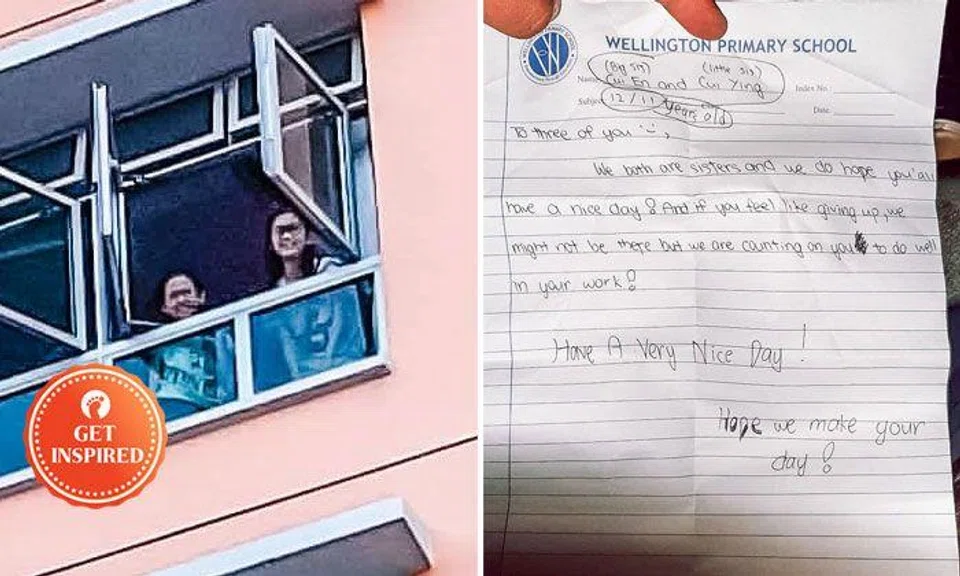 GET
INSPIRED
WELLINGTON PRIMARY SCHOOL
(Big sis) (little sis)
Name Cui En and Cui Ying Index No.
Subject 12/11 years old Date
To three of you :),
We both are sisters and we do hope you'all
have a nice day! And if you feel like giving up, we
might not be there but we are counting on you to do well
in your work!
Have A Very Nice Day!
Hope we make your
day!